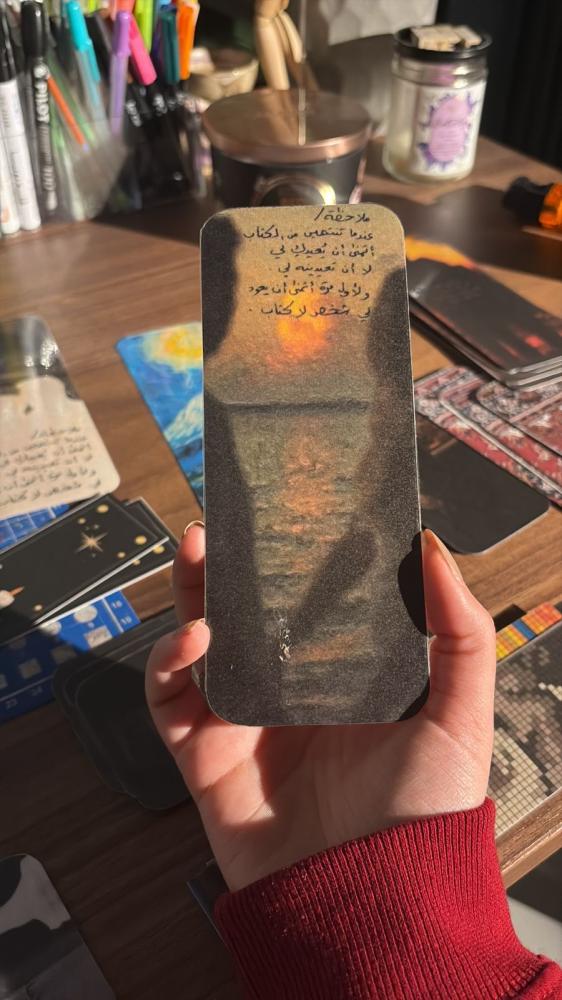 ملاحظة/
عندما تنتهين من لكتاب
أتمنى أن يُعيدك لي
لا أن تعيدينه لي
ولأول مرة أتمنى أن يعود
لي شخص لا كتاب.
PILOT
16
23
24